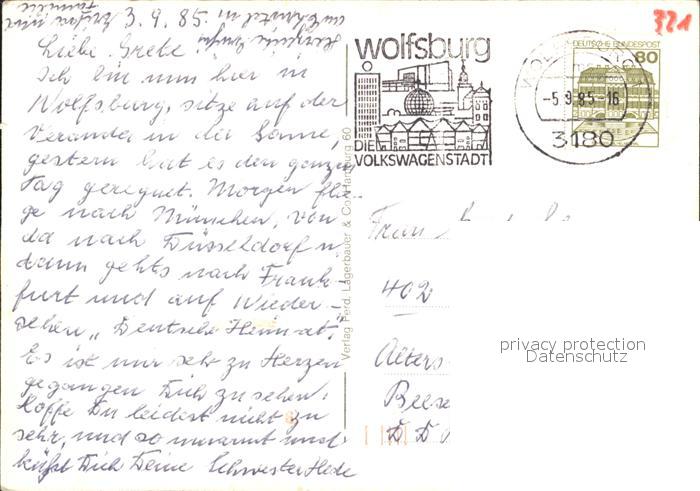 3.9.85.
Liebe Grete!
Ich bin nun hier in
Wolfsburg, sitze auf der
Veranda in der Sonne,
gestern hat es den ganzen
Tag geregnet. Morgen flie-
ge nach München, von
da nach Düsseldorf u
dann gehts nach Frank-
furt und auf Wieder-
sehen "Deutsche Heimat".
Es ist mir sehr zu Herzen
gegangen Dich zu sehen.
Hoffe Du leidest nicht zu
sehr, und so umarmt und
küßt Dich Deine Schwester Hede
Verlag Ferd. Lagerbauer & Co Hamburg 60
321
wolfsburg
DIE
VOLKSWAGENSTADT
DEUTSCHE BUNDESPOST
80
-5.9.85-16
3180
Frau
402
Alters
DD
privacy protection
Datenschutz